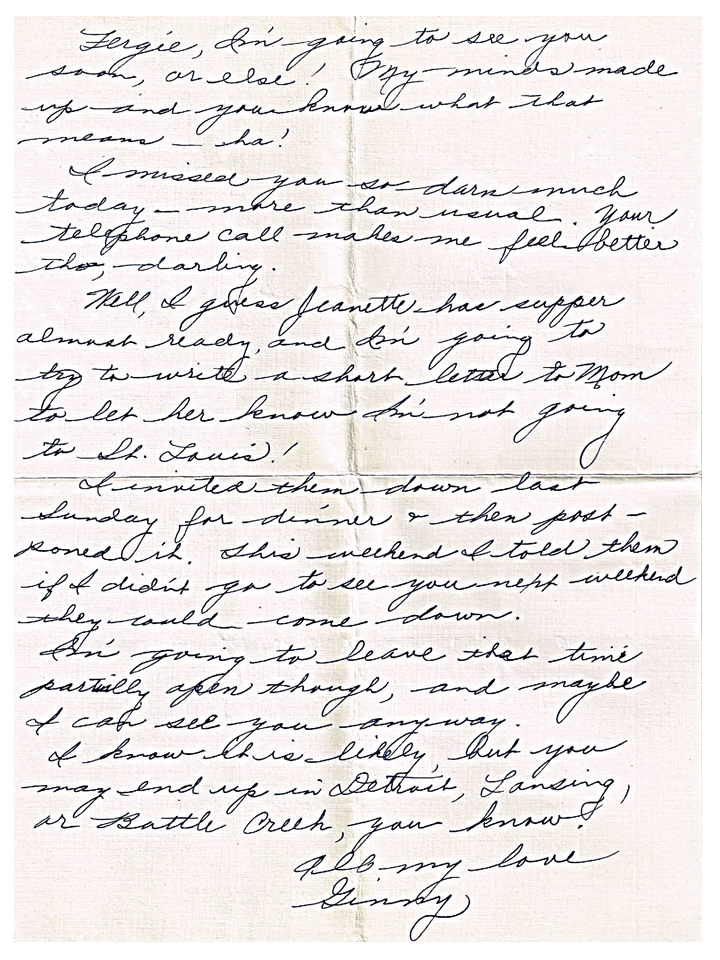 Fergie, I'm going to see you
soon, or else! My minds made
up and you know what that
means — ha!
I missed you so darn much
today — more than usual. Your
telephone call makes me feel better
tho, darling.
Well, I guess Jeanette has supper
almost ready, and I'm going to
try to write a short letter to Mom
to let her know I'm not going
to St. Louis!
I invited them down last
Sunday for dinner & then post-
poned it. This weekend I told them
if I didn't go to see you next weekend
they could come down.
I'm going to leave that time
partially open though, and maybe
I can see you anyway.
I know it is likely, but you
may end up in Detroit, Lansing,
or Battle Creek, you know!
All my love
Ginny